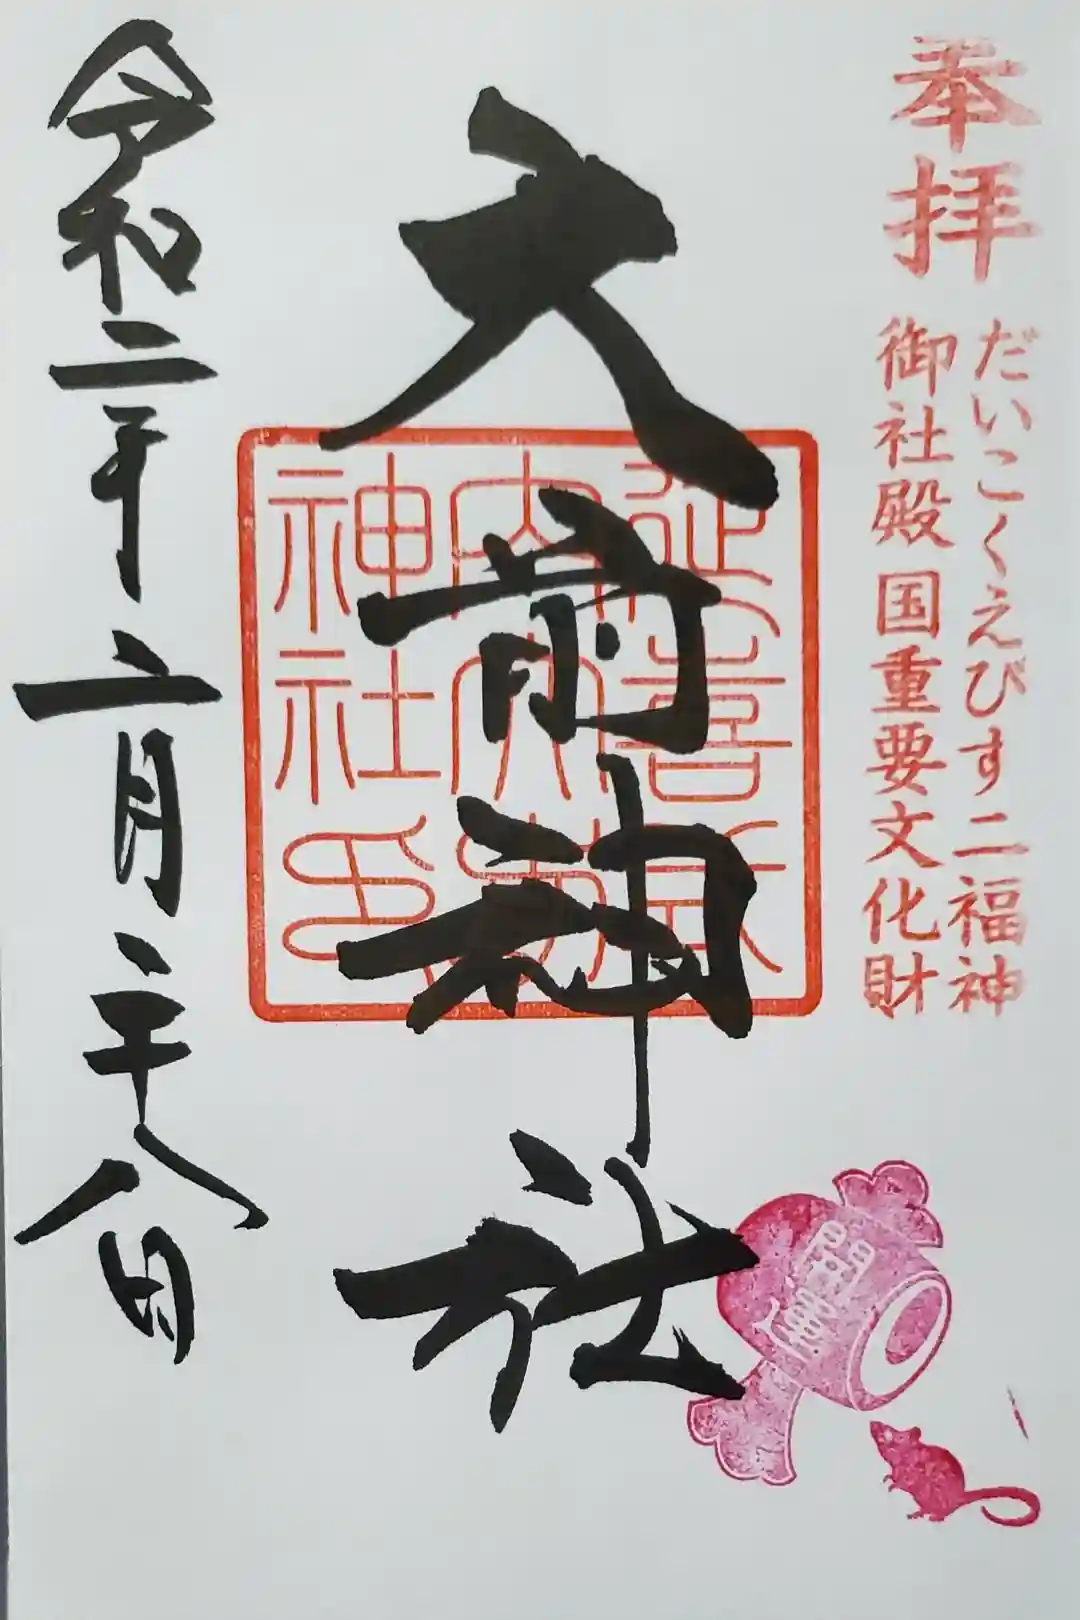 奉拝
だいこくえびす二福神
御社殿 国重要文化財
大前神社
延喜式
内大前
神社印
開運
令和二年二月二十八日